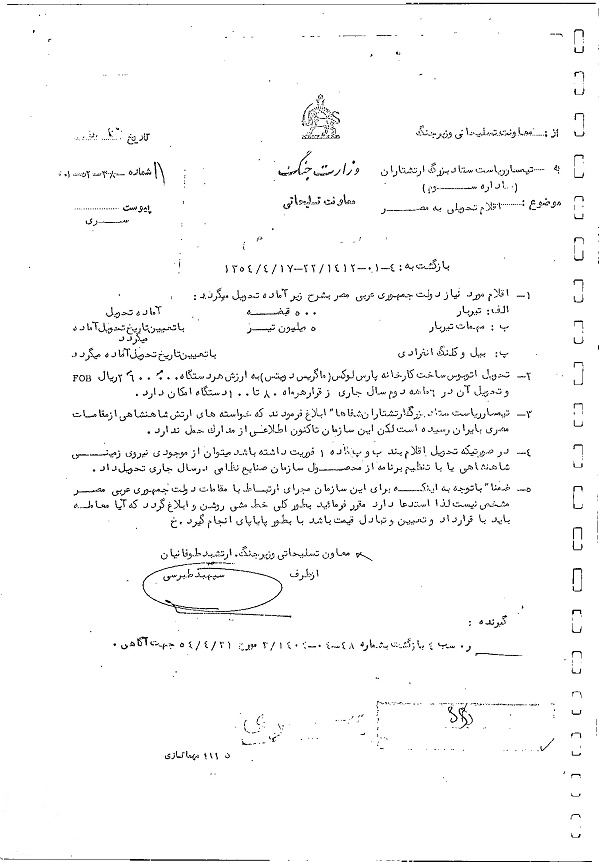 از: معاونت تسلیحاتی وزیرجنگ
به تیمسار ریاست ستاد بزرگ ارتشتاران
(اداره سوم)
موضوع: اقلام تحویلی به مصر
وزارت جنگ
معاونت تسلیحاتی
تاریخ
شماره
پیوست
سری
بازگشت به: ۴-۰۱-۲۲/۱۴۱۲-۱۳۵۴/۴/۱۷
۱- اقلام مورد نیاز دولت جمهوری عربی مصر بشرح زیر آماده تحویل میگردد:
الف: تیربار ۵۰۰ قبضه آماده تحویل
ب: مهمات تیربار ۵ میلیون تیر با تعیین تاریخ تحویل آماده
میگردد
پ: بیل و کلنگ انفرادی با تعیین تاریخ تحویل آماده میگردد
۲- تحویل اتوبوس ساخت کارخانه پارس لوکس (ماگریس دویتس) به ارزش هر دستگاه ریال FOB
و تحویل آن در ۶ ماهه دوم سال جاری از قرار هرماه ۸۰ تا ۱۰۰ دستگاه امکان دارد.
۳- تیمسار ریاست ستاد بزرگ ارتشتاران شفاها" ابلاغ فرمودند که خواسته های ارتش شاهنشاهی از مقامات
مصری بایران رسیده است لکن این سازمان تاکنون اطلاعی از مدارک حمل ندارد.
۴- در صورتیکه تحویل اقلام بند ب و پ ماده ۱ فوریت داشته باشد میتوان از موجودی نیروی زمینی
شاهنشاهی یا با تنظیم برنامه از محصول سازمان صنایع نظامی در سال جاری تحویل داد.
۵- ضمنا" با توجه به اینکه برای این سازمان مجرای ارتباط با مقامات دولت جمهوری عربی مصر
مشخص نیست لذا استدعا دارد مقرر فرمائید بطور کلی خط مشی روشن و ابلاغ گردد که آیا معامله
باید با قرارداد و تعیین و تبادل قیمت باشد یا بطور پایاپای انجام گیرد. خ
معاون تسلیحاتی وزیرجنگ. ارتشبد طوفانیان
از طرف سپهبد طبرسی
گیرنده:
بازگشت بشماره مورخ ۵۴/۴/۲۱ جهت آگاهی.